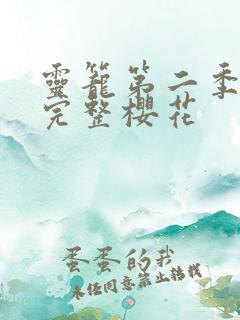 靈籠第二季
完整櫻花
蛋蛋的我
未经同意禁止转载